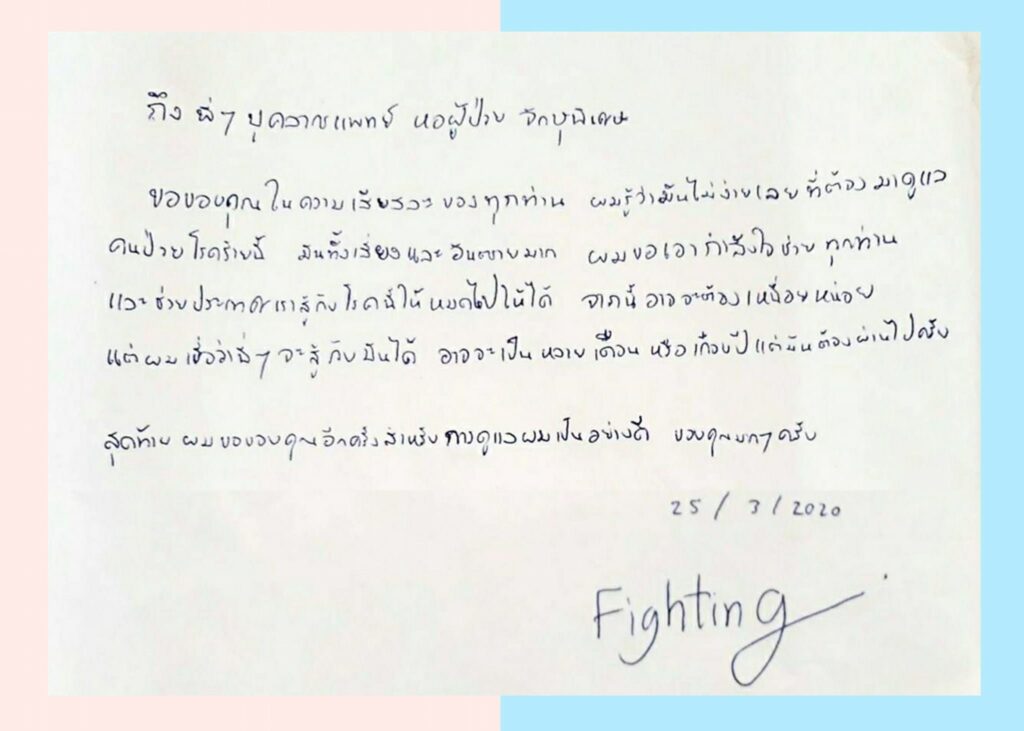 ถึง พี่ๆ บุคลากรแพทย์ หอผู้ป่วย จักษุพิเศษ
ขอขอบคุณในความเสียสละของทุกท่าน ผมรู้ว่ามันไม่ง่ายเลยที่ต้องมาดูแล
คนป่วยโรคร้ายนี้ มันทั้งเสี่ยงและอันตรายมาก ผมขอเอากำลังใจช่วยทุกท่าน
และช่วยประเทศเราสู้กับโรคนี้ให้หมดไปให้ได้ จากนี้อาจจะต้องเหนื่อยหน่อย
แต่ผมเชื่อว่าพี่ๆ จะสู้กับมันได้ อาจจะเป็นหลายเดือน หรือเกือบปี แต่มันต้องผ่านไปครับ
สุดท้าย ผมขอขอบคุณอีกครั้งสำหรับการดูแลผมเป็นอย่างดี ขอบคุณมากๆครับ
25 / 3 / 2020
Fighting